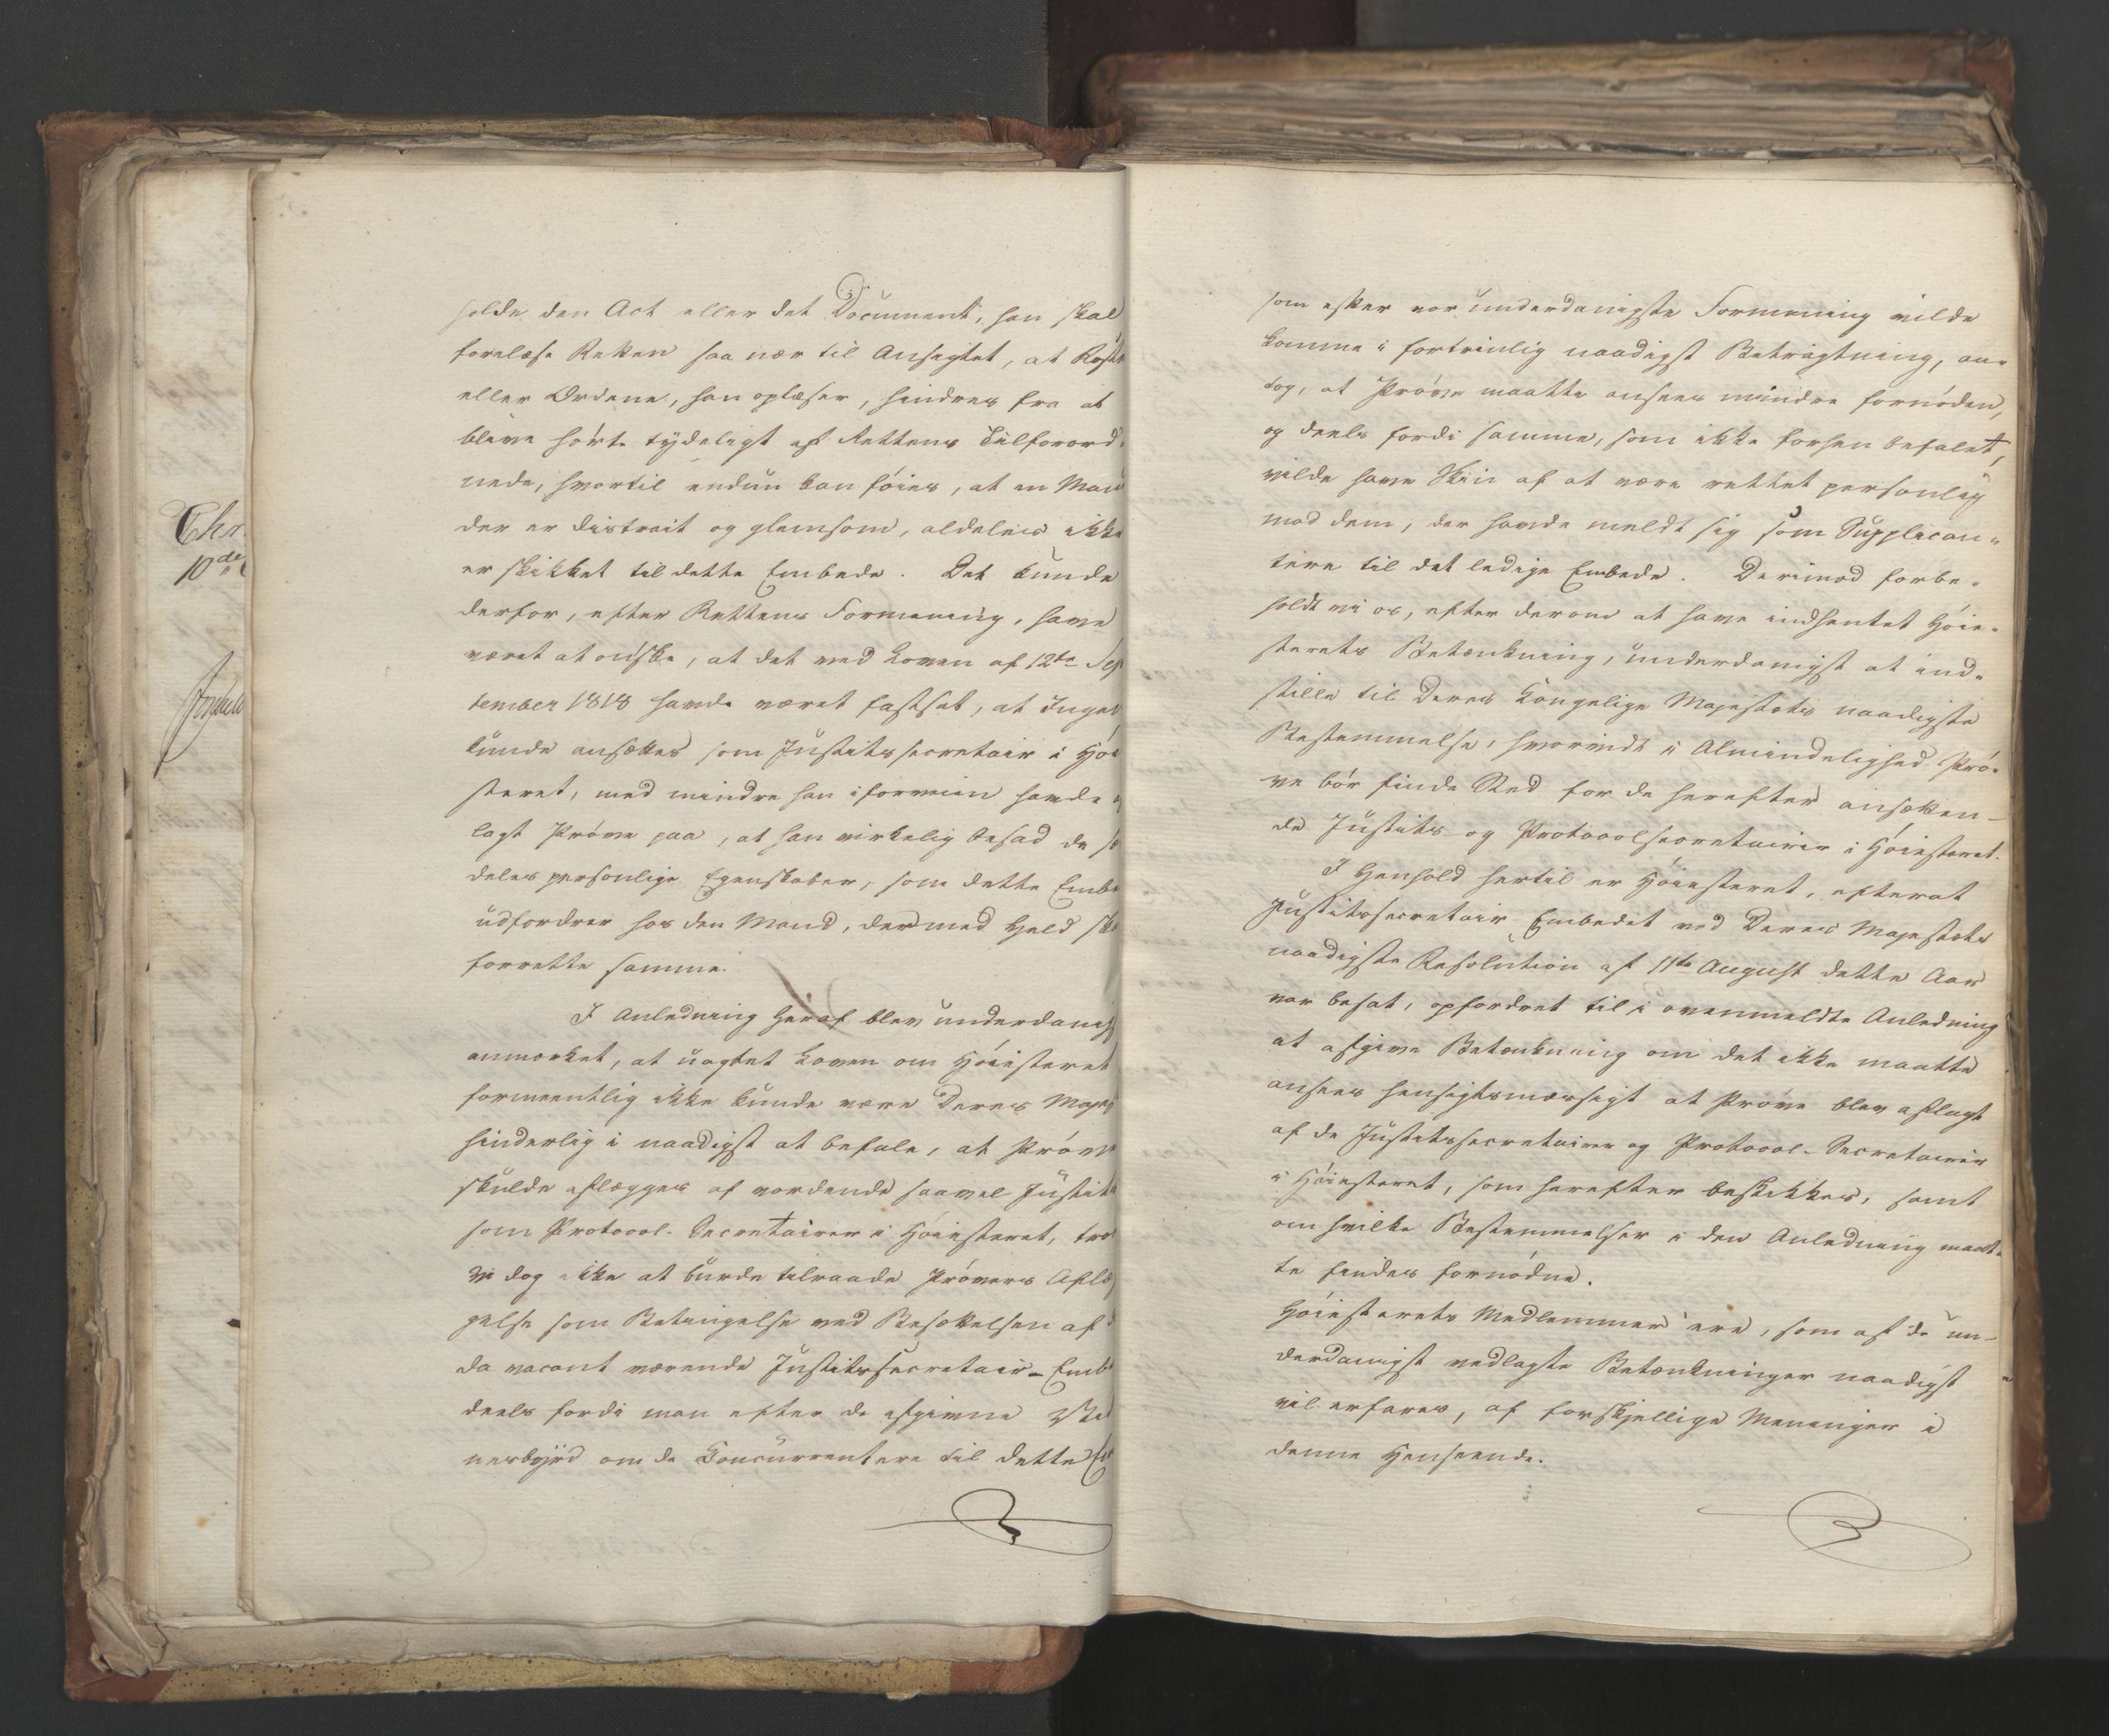 Chr
10de
holde den Act eller det Document, han skal
forelæse Retten saa nær til Ansigtet, at Røst
eller Ordene, han oplæser, hindres fra at
bleve hørte tydeligt af Rettens Tilforord-
nede, hvortil endnu kan føies, at en Man
der er distrait og glemsom, aldeles ikke
er skikket til dette Embede. Det kunde
derfor, efter Rettens Formening, have
været at ønske, at det ved Loven af 12te Sep
tember 1818 havde været fastsat, at Ingen
kunde ansættes som Justitssecretair i Høie
steret, med mindre han i forveien havde a
lagt Prøve paa, at han virkelig besad de sæ
deles personlige Egenskaber, som dette Embe
udfordrer hos den Mand, der med Held ska
forrette samme.
I Anledning heraf blev underdanig
anmærket, at uagtet Loven om Høiesteret
formeentlig ikke kunde være Deres Majes
hinderlig i naadigst at befale, at Prøve
skulde aflægges af vordende saavel Justits
som Protocol-Secretairer i Høiesteret, tro
vi dog ikke at burde tilraade Prøvers Aflæg
gelse som Betingelse ved Besættelsen af d
da vacant værende Justitssecretair-Embe
deels fordi man efter de afgivne Vid
nesbyrd om de Concurrentere til dette Em
som efter vor underdanigste Formening vilde
komme i fortrinlig naadigst Betragtning, an-
tog, at Prøve maatte ansees mindre fornøden,
og deels fordi samme, som ikke forhen befalet,
vilde have Skin af at være rettet personlig
mod dem, der havde meldt sig som Supplican-
tere til det ledige Embede. Derimod forbe-
holdt vi os, efter derom at have indhentet Høie-
sterets Betænkning, underdanigst at ind-
stille til Deres Kongelige Majestæts naadigste
Bestemmelse, hvorvidt i Almindelighed Prø-
ve bør finde Sted for de herefter ansætten-
de Justits og Protocolsecretairer i Høiesteret.
I Henhold hertil er Høiesteret, efterat
Justitssecretair-Embedet ved Deres Majestæts
naadigste Resolution af 11te August dette Aar
var besat, opfordret til i ovenmeldte Anledning
at afgive Betænkning om det ikke maatte
ansees hensigtsmæssigt at Prøve blev aflagt
af de Justitssecretairer og Protocol-Secretairer
i Høiesteret, som herefter beskikkes, samt
om hvilke Bestemmelser i den Anledning maat-
te findes fornødne.
Høiesterets Medlemmer ere, som af de un-
derdanigst vedlagte Betænkninger naadigst
vil erfares, af forskjellige Meninger i
denne Henseende.